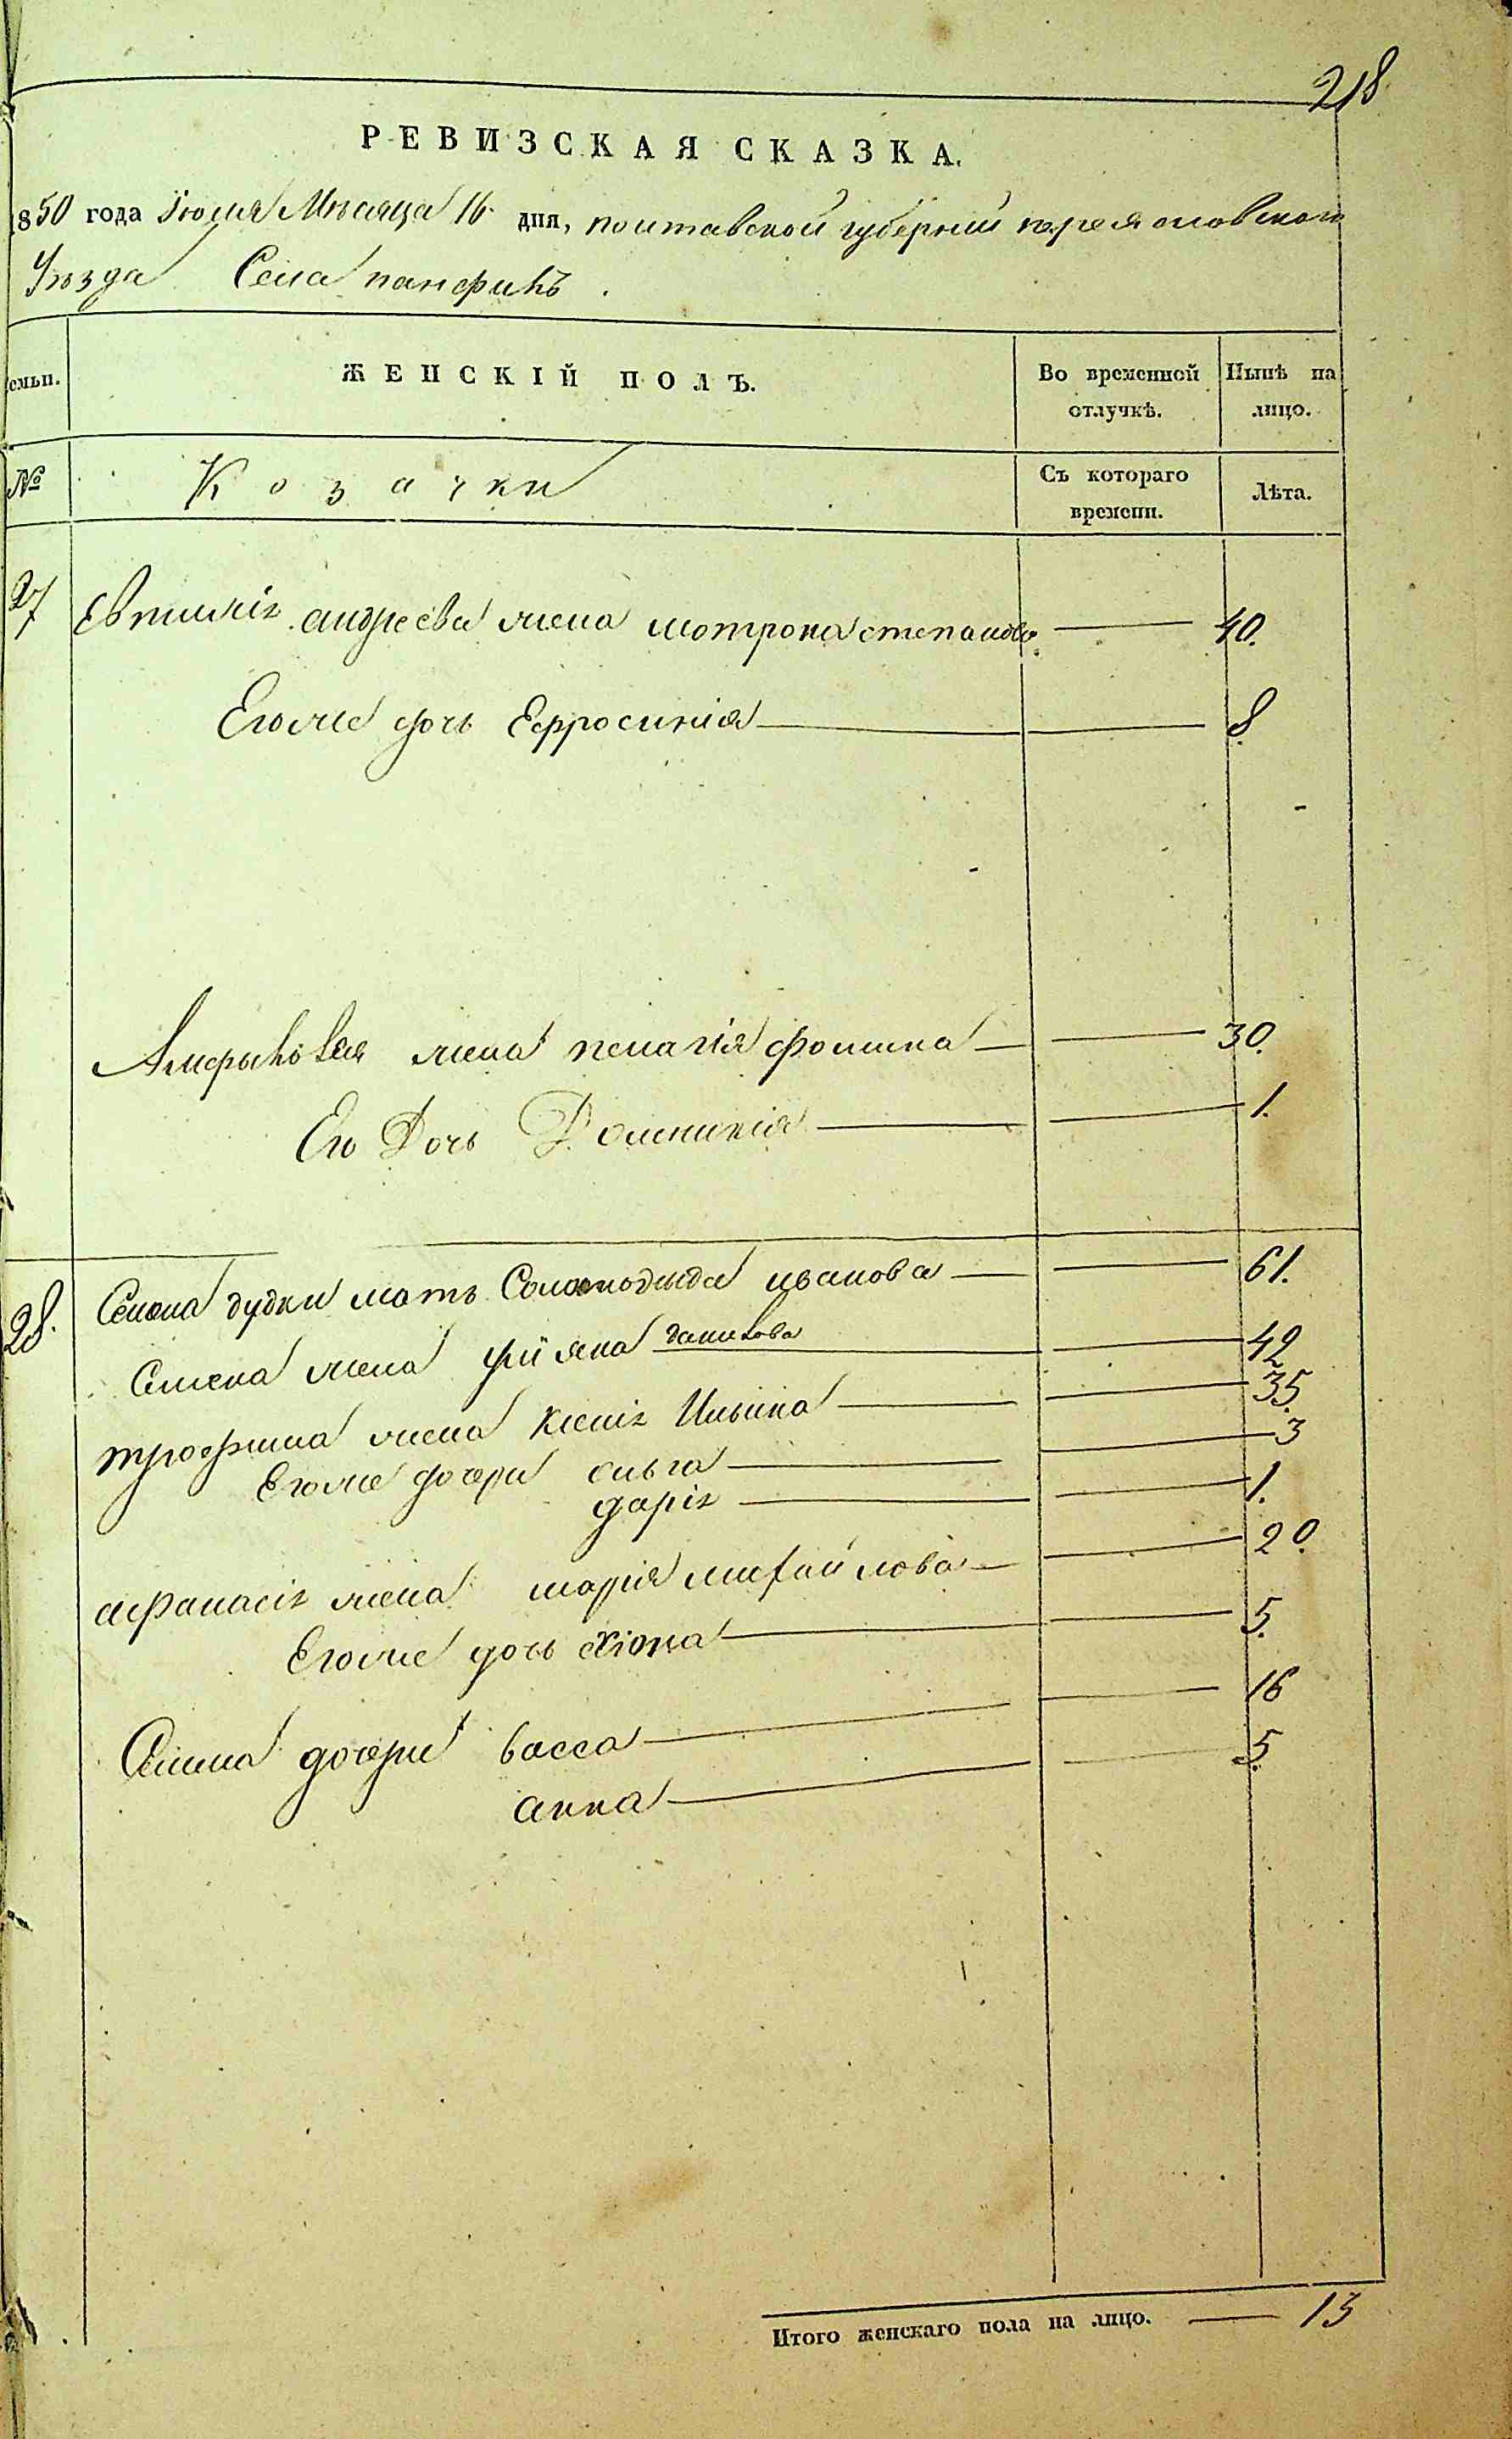 218
РЕВИЗСКАЯ СКАЗКА.
1850 года Іюля Мѣсяца 16 дня, полтавской губерніи переясловского
Уѣзда Села панфилъ.
семьи. ЖЕНСКІЙ ПОЛЪ. Во временной отлучкѣ. Нынѣ на лицо.
№ Козачки Съ котораго времени. Лѣта.
27 Евтихія андреева жена мотрона степанова — 40.
Егоже дочь Ефросинія — 8.
жена пелагія фомина — 30.
Его Дочь Домникія — 1.
28. Семена дудки мать Соломонида иванова — 61.
Семена жена уліяна данилова — 42
трофима жена ксенія Ильина — 35.
Егоже дочери ольга — 3
дарія — 1.
афанасія жена марія михайлова — 20.
Егоже дочь хіонa — 5.
Семена дочери васса — 16
анна — 5.
Итого женскаго пола на лицо. — 13